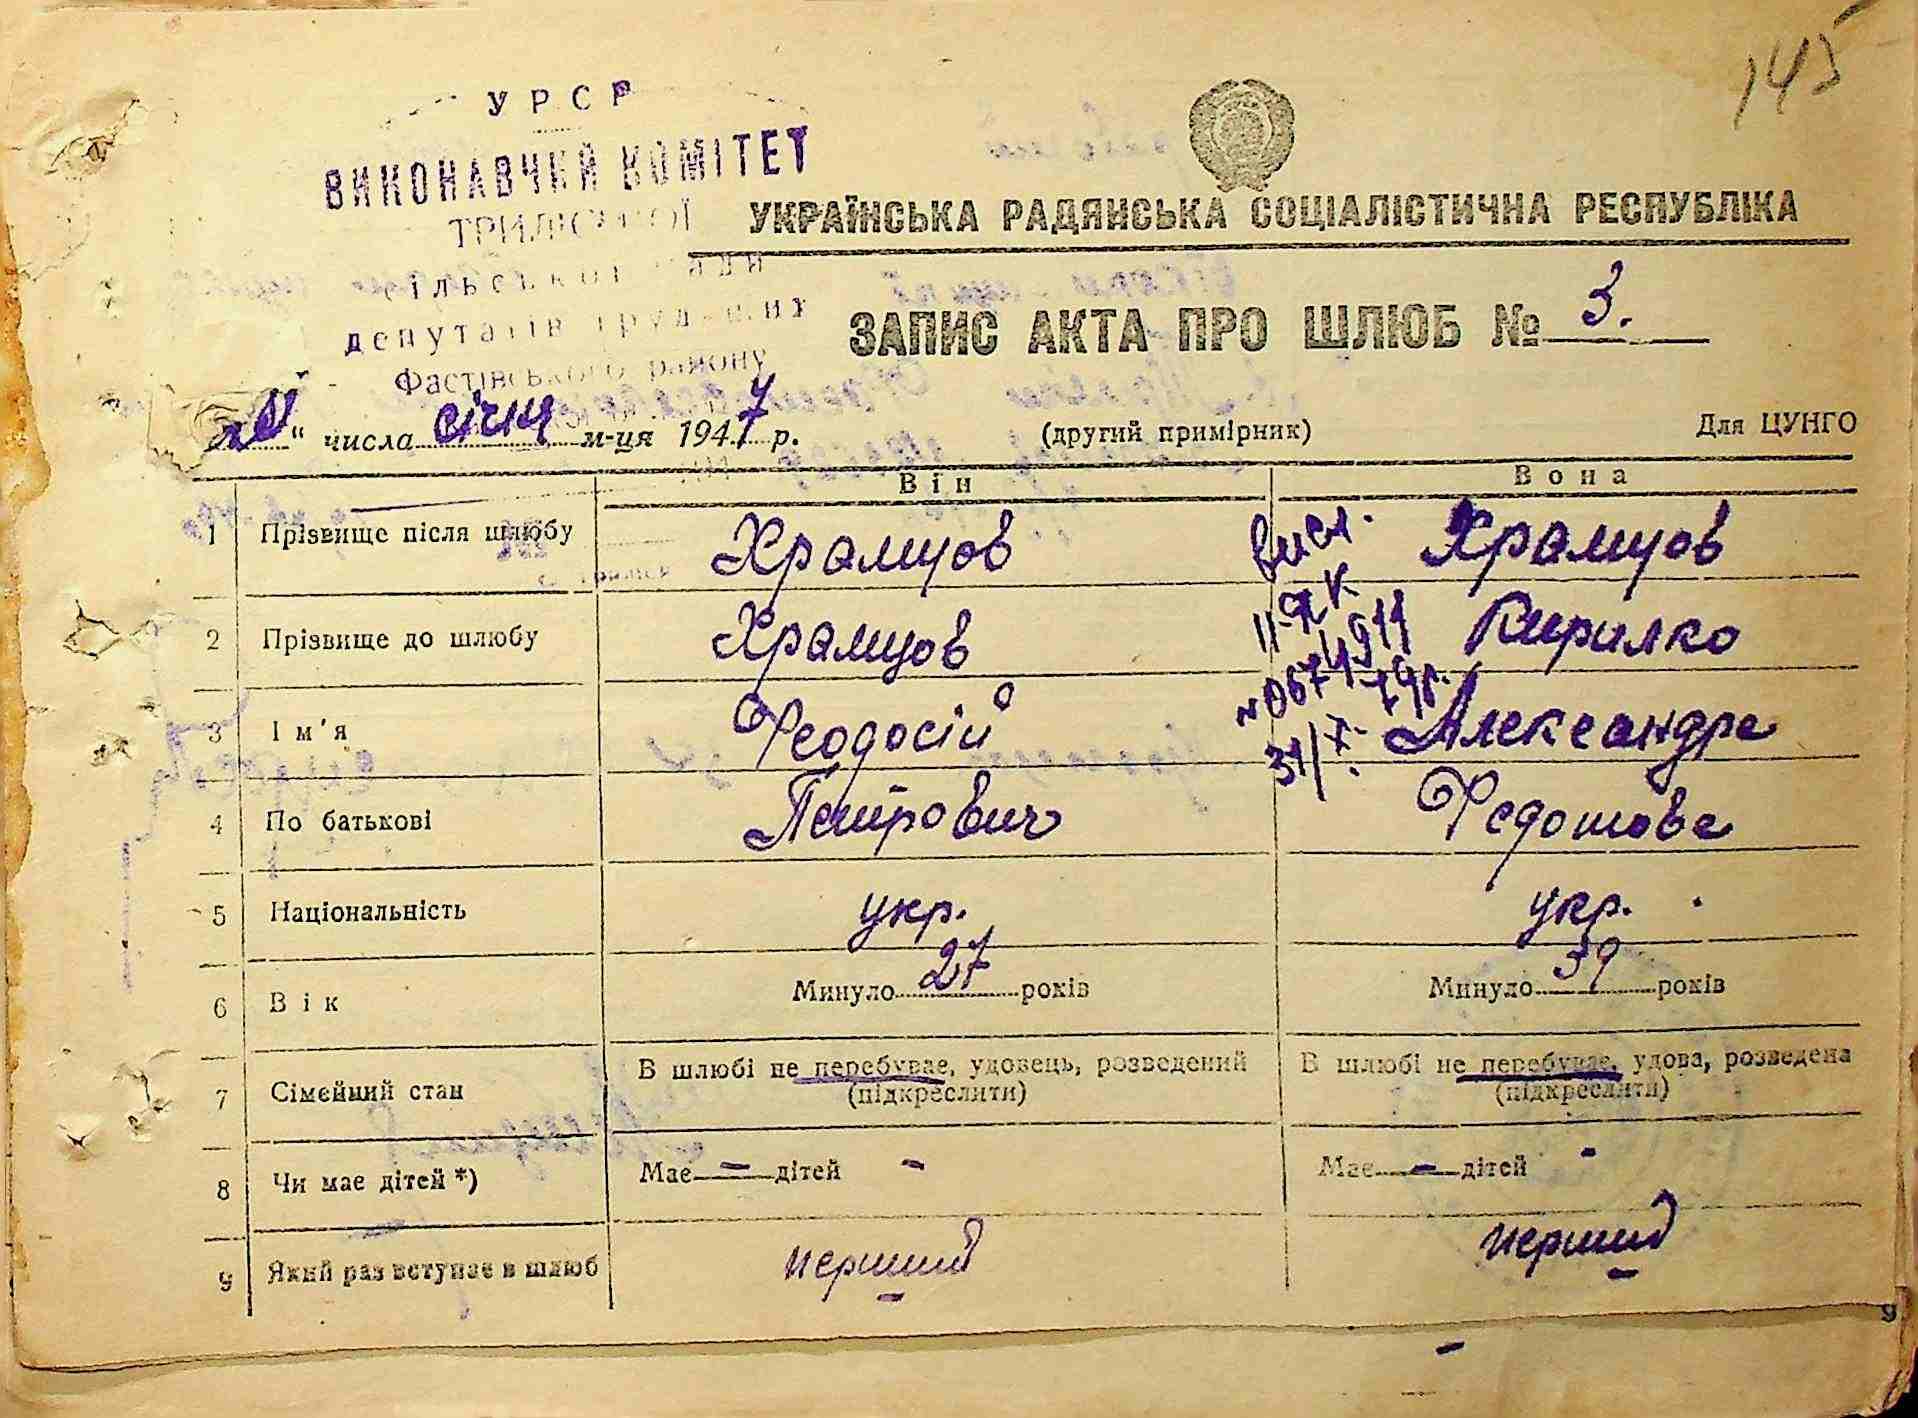 145
УРСР
ВИКОНАВЧИЙ КОМІТЕТ
ТРИЛІСЬКОЇ
сільської ради
депутатів трудящих
Фастівського району
УКРАЇНСЬКА РАДЯНСЬКА СОЦІАЛІСТИЧНА РЕСПУБЛІКА
ЗАПИС АКТА ПРО ШЛЮБ № 3.
" числа січня м-ця 1947 р. (другий примірник) Для ЦУНГО
Він Вона
1 Прізвище після шлюбу Храмцов Храмцов
2 Прізвище до шлюбу Храмцов Кирилко
3 Ім'я Феодосій Александра
4 По батькові Петрович Федотовна
5 Національність укр. укр.
6 Вік Минуло 27 років Минуло 39 років
7 Сімейний стан В шлюбі не перебуває, удовець, розведений (підкреслити) В шлюбі не перебуває, удова, розведена (підкреслити)
8 Чи має дітей *) Має - дітей - Має - дітей -
9 Який раз вступає в шлюб перший перший
вист.
II-ЯК
31/X-79р.
9